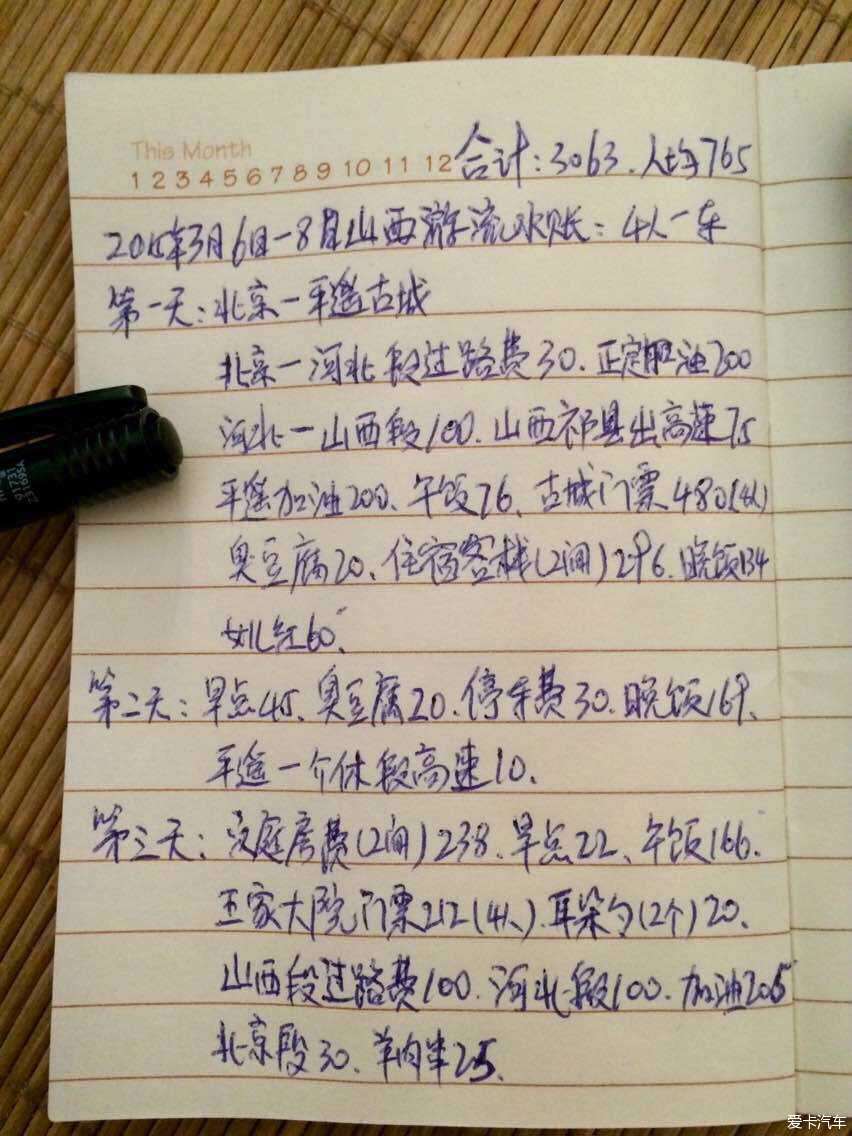 This Month
1 2 3 4 5 6 7 8 9 10 11 12 合计:3063.人均765
2015年3月6日-8日山西游流水账:4人一车
第一天:北京-平遥古城
北京-河北段过路费30.正定加油200
河北-山西段100.山西祁县出高速75
平遥加油200、午饭76、古城门票480(4人)
臭豆腐20、住宿客栈(2间)296.晚饭134
女儿红60、
第二天:早点45、臭豆腐20.停车费30.晚饭169、
平遥-介休段高速10、
第三天:家庭房费(2间)238.早点22、午饭166.
王家大院门票212(4人).耳朵勺(2个)20、
山西段过路费100.河北段100.加油205
北京段30、羊肉串25、
爱卡汽车